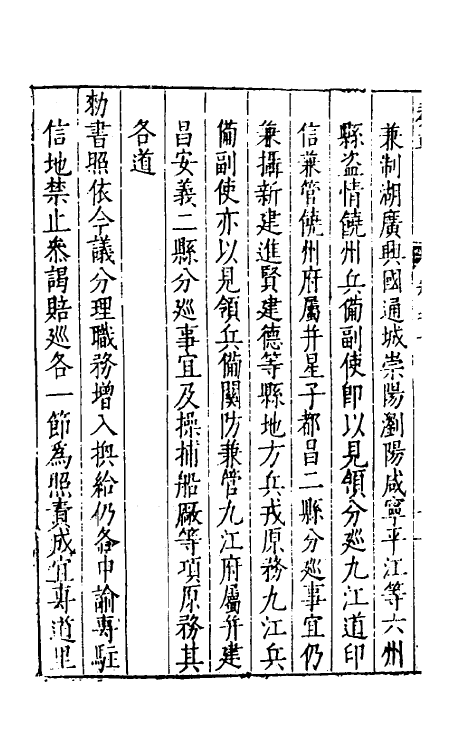 兼制湖廣興國通城崇陽瀏陽咸寧平江等六州
縣盗情饒州兵備副使即以見領分廵九江道印
信兼管饒州府屬并星子都昌二縣分廵事宜仍
兼攝新建進賢建德等縣地方兵戎原務九江兵
備副使亦以見領兵備關防兼管九江府屬并建
昌安義二縣分廵事宜及操捕船厰等項原務其
各道
勑書照依今議分理職務増入換給仍各申諭專駐
信地禁止叅謁賠廵各一節為照責成宜專道里